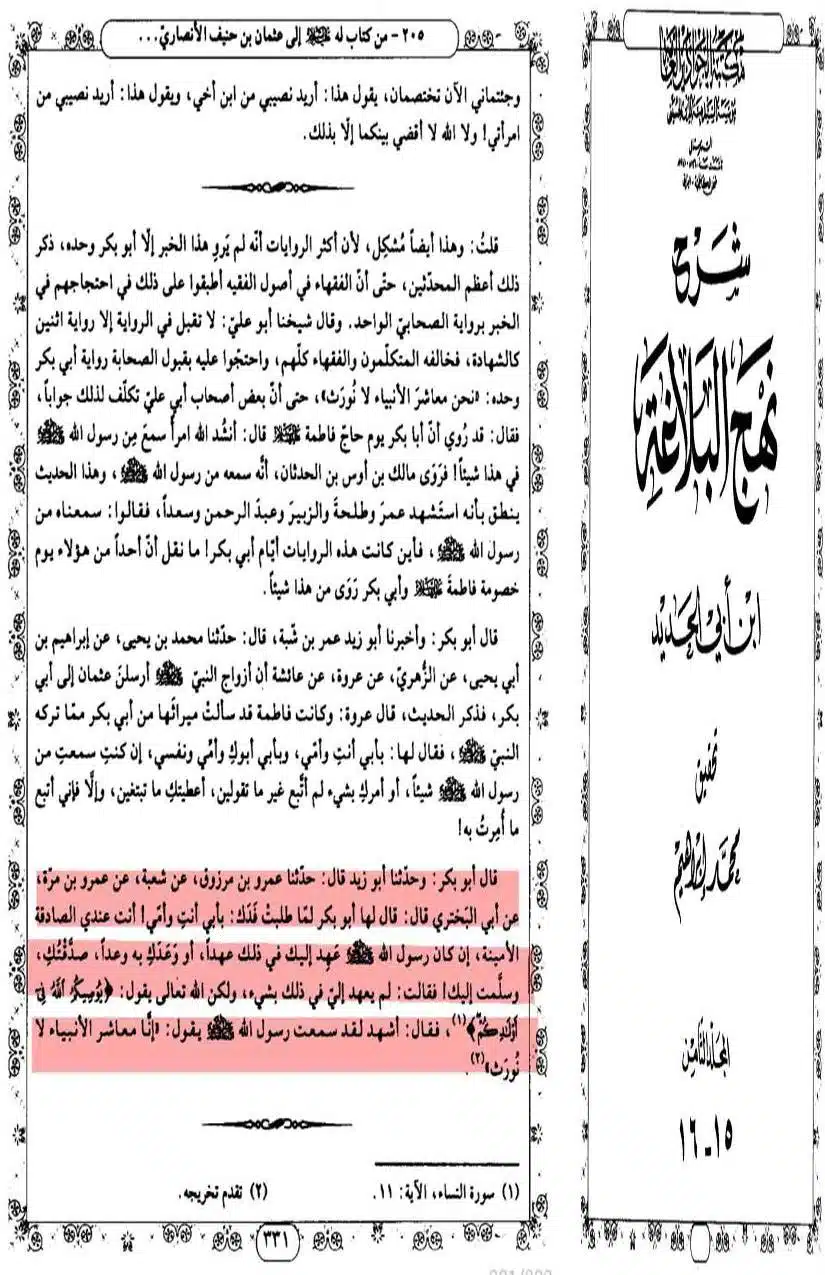 ٢٠٥ - من كتاب له ﵇ إلى عثمان بن حنيف الأنصاريّ...
وجئتماني الآن تختصمان، يقول هذا: أريد نصيبي من ابن أخي، ويقول هذا: أريد نصيبي من
امرأتي! ولا الله لا أقضي بينكما إلّا بذلك.
قلتُ: وهذا أيضاً مُشكِل، لأن أكثر الروايات أنّه لم يَروِ هذا الخبر إلّا أبو بكر وحده، ذكر
ذلك أعظم المحدّثين، حتّى أنّ الفقهاء في أصول الفقيه أطبقوا على ذلك في احتجاجهم في
الخبر برواية الصحابيّ الواحد. وقال شيخنا أبو عليّ: لا تقبل في الرواية إلا رواية اثنين
كالشهادة، فخالفه المتكلّمون والفقهاء كلّهم، واحتجّوا عليه بقبول الصحابة رواية أبي بكر
وحده: «نحن معاشرَ الأنبياء لا نُورَث»، حتى أنّ بعض أصحاب أبي عليّ تكلّف لذلك جواباً،
فقال: قد رُوي أنّ أبا بكر يوم حاجّ فاطمة ﵍ قال: أنشُد الله امرأً سمعَ مِن رسول الله ﷺ
في هذا شيئاً! فرَوَى مالك بن أوس بن الحدثان، أنّه سمعه من رسول الله ﷺ، وهذا الحديث
ينطق بأنه استَشهد عمرَ وطلحةَ والزبيرَ وعبدَ الرحمن وسعداً، فقالوا: سمعناه من
رسول الله ﷺ، فأين كانت هذه الروايات أيّام أبي بكر! ما نقل أنّ أحداً من هؤلاء يوم
خصومة فاطمةَ ﵍ وأبي بكر رَوَى من هذا شيئاً.
قال أبو بكر: وأخبرنا أبو زيد عمر بن شَبّة، قال: حدّثنا محمد بن يحيى، عن إبراهيم بن
أبي يحيى، عن الزُّهريّ، عن عروة، عن عائشة أن أزواج النبيّ ﷺ أرسلنَ عثمان إلى أبي
بكر، فذكر الحديث، قال عروة: وكانت فاطمة قد سألتْ ميراثَها من أبي بكر ممّا تركه
النبيّ ﷺ، فقال لها: بأبي أنتِ وأمّي، وبأبي أبوكِ وأُمّي ونفسي، إن كنتِ سمعتِ من
رسول الله ﷺ شيئاً، أو أمركِ بشيء لم أتّبع غير ما تقولين، أعطيتكِ ما تبتغين، وإلّا فإني أتبع
ما أُمِرتُ به!
قال أبو بكر: وحدّثنا أبو زيد قال: حدّثنا عمرو بن مرزوق، عن شعبة، عن عمرو بن مرّة،
عن أبي البَختري قال: قال لها أبو بكر لمّا طلبتْ فَدَك: بأبي أنتِ وأمّي! أنت عندي الصادقة
الأمينة، إن كان رسول الله ﷺ عَهِد إليك في ذلك عهداً، أو وَعَدَكِ به وعداً، صدَّقْتُكِ،
وسلَّمت إليكِ! فقالت: لم يعهد إليّ في ذلك بشيء، ولكن الله تعالى يقول: ﴿يُوصِيكُمُ اللَّهُ فِي
أَوْلَادِكُمْ﴾(١)، فقال: أشهد لقد سمعت رسول الله ﷺ يقول: «إنّا معاشر الأنبياء لا
نُورَث»(٢).
(١) سورة النساء، الآية: ١١.
(٢) تقدم تخريجه.
٣٣١
شَرْحُ
نَهْجِ الْبَلَاغَةِ
ابن أبي الحديد
تحقيق
محمد إبراهيم
المجلد الثامن
١٥-١٦